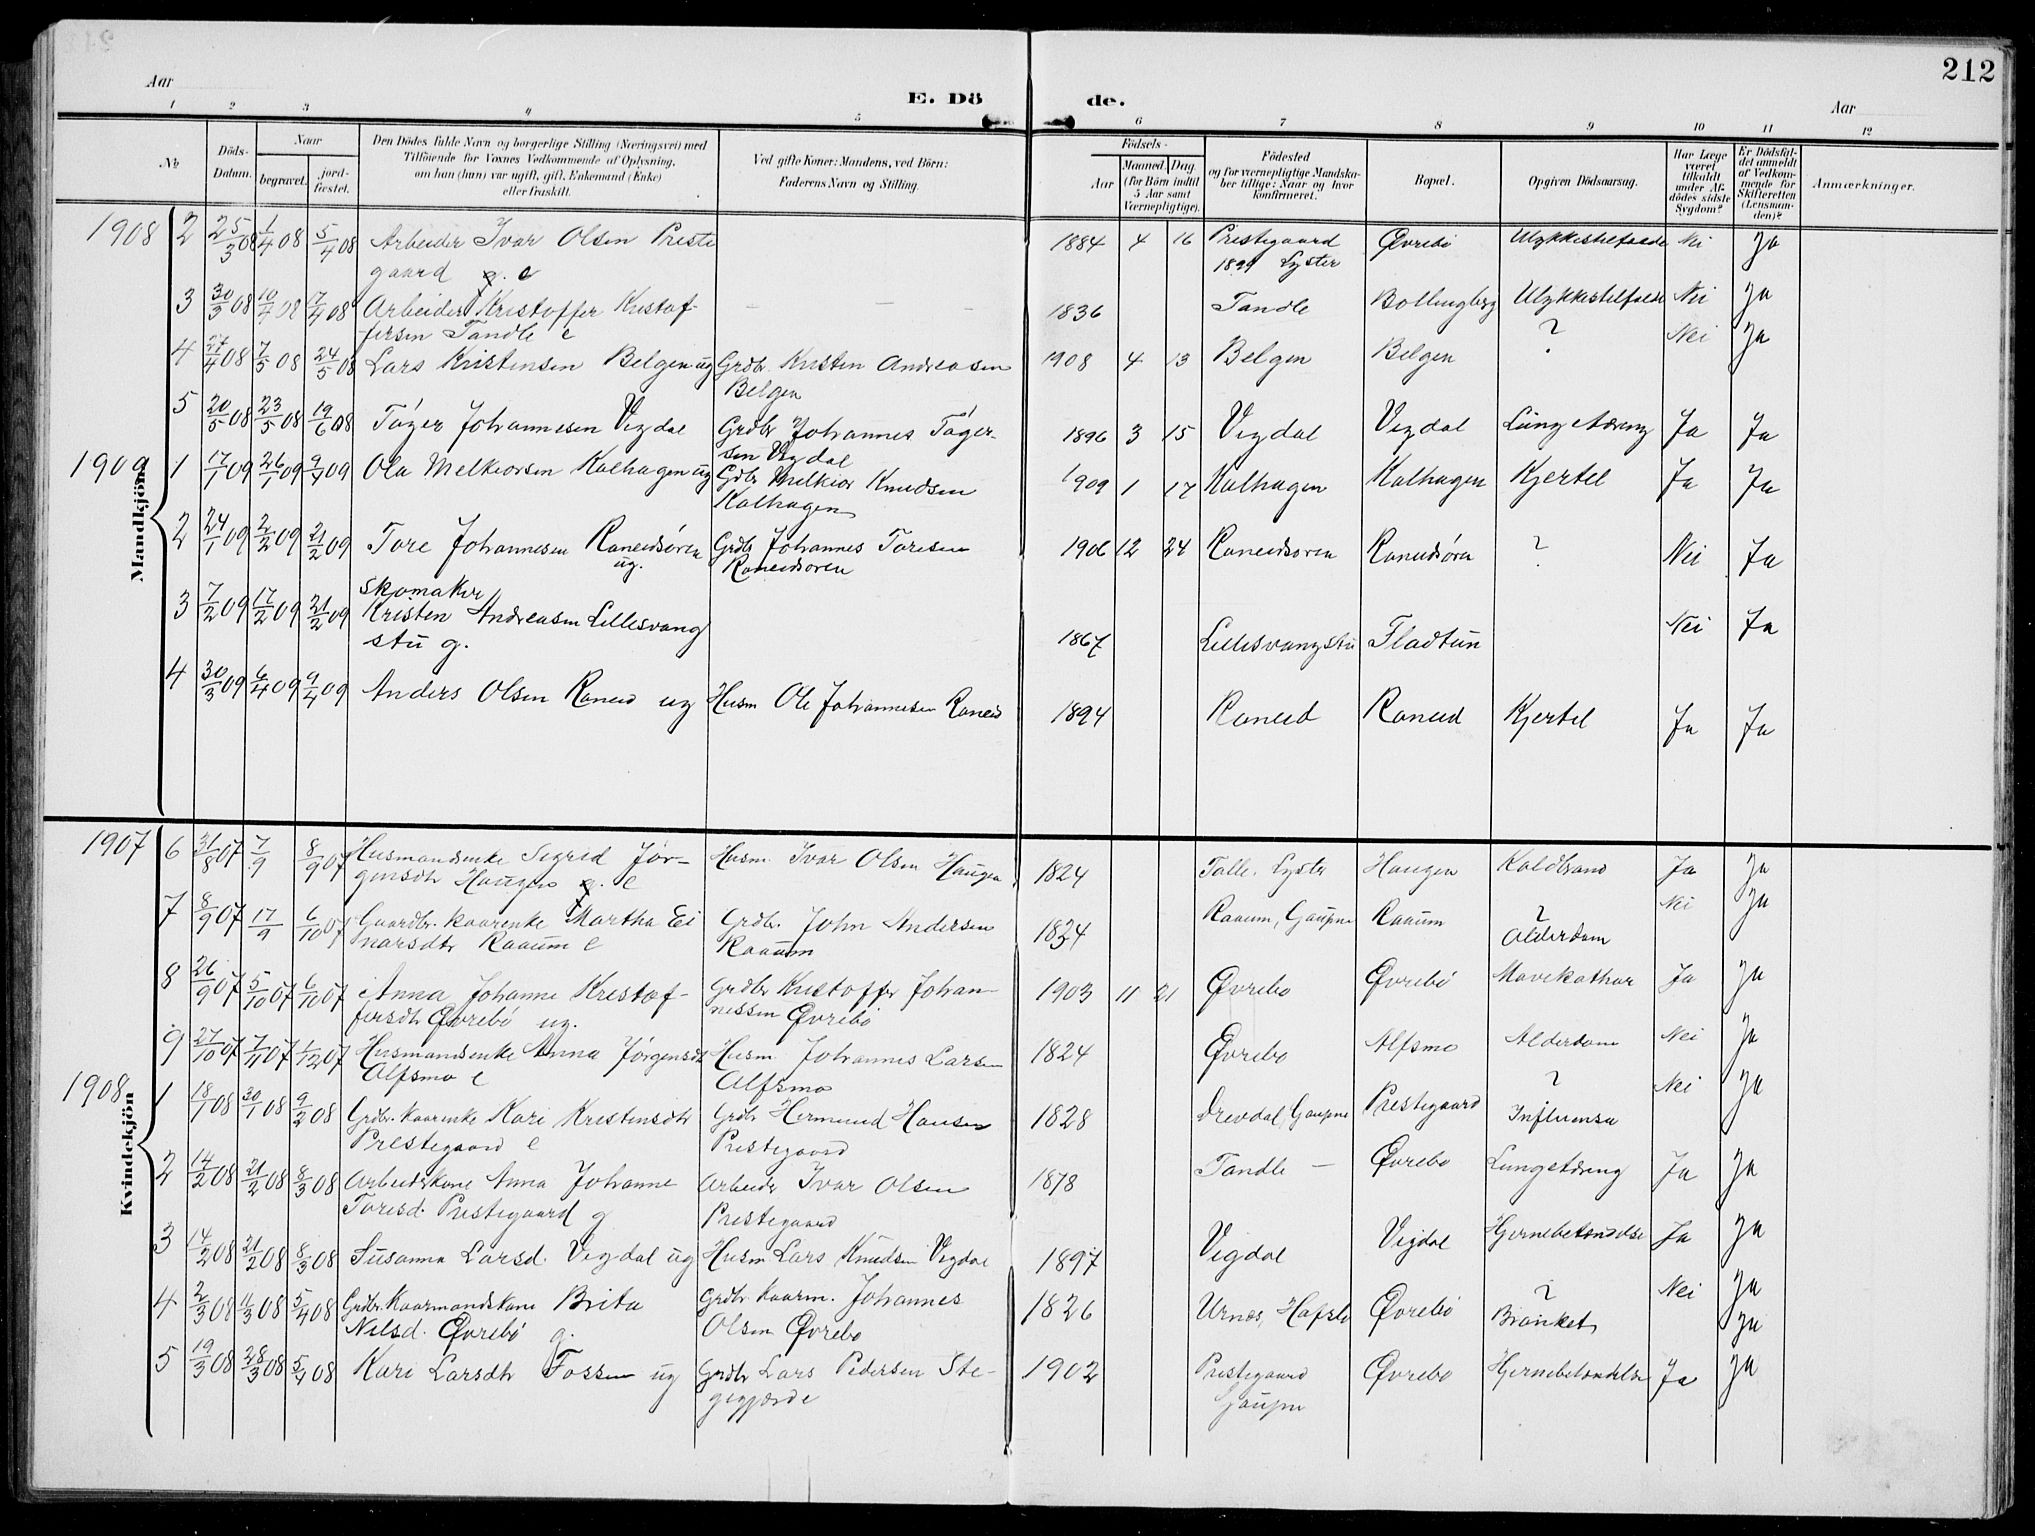 212
Aar
E. Dö de.
Aar
1 2 3 4 5 6 7 8 9 10 11 12
№
Döds-
Datum.
Naar
begravet.
jord-
fæstet.
Den Dödes fulde Navn og borgerlige Stilling (Næringsvei) med
Tilföiende for Voxnes Vedkommende af Oplysning,
om han (hun) var ugift, gift, Enkemand (Enke)
eller fraskilt.
Ved gifte Koner: Mandens, ved Börn:
Faderens Navn og Stilling.
Födsels-
Aar
Maaned.
Dag.
(for Börn indtil
5 Aar samt
Værnepligtige).
Födested
og for værnepligtige Mandska-
ber tillige: Naar og hvor
konfirmeret.
Bopæl.
Opgiven Dödsaarsag.
Har Læge
været
tilkaldt
under Af-
dödes sidste
Sygdom?
Er Dödsfal-
det anmeldt
af Vedkom-
mende for
Skifteretten
(Lensman-
den)?
Anmærkninger.
Mandkjön
1908 2 25/3 08 1/4 08 5/4 08 Arbeider Ivar Olsen Preste 1884 4 16 Prestegaard Øvrebö Ulykkestilfælde Nei Ja
gaard e 1899 Lyster
3 30/3 08 10/4 08 7/4 08 Arbeider Kristoffer Kristof- – – – 1836 Tandle Bollingberg Ulykkestilfælde Nei Ja
fersen Tandle e
4 27/4 08 7/5 08 24/5 08 Lars Kristensen Belgen ug Grdbr. Kristen Andreasen 1908 4 13 Belgen Belgen ? Nei Ja
Belgen
5 20/5 08 23/5 08 19/6 08 Töger Johannesen Vigdal Grdbr Johannes Töger- 1896 3 15 Vigdal Vigdal Lungetæring Ja Ja
sen Vigdal
1909 1 17/1 09 26/1 09 09 Ola Melkiorsen Kalhagen ug Gdbr Melkior Knudsen 1909 1 17 Kalhagen Kalhagen Kjertel Ja Ja
Kalhagen
2 24/1 09 2/2 09 21/2 09 Tore Johannesen Raneidsøren Grdb Johannes Toresen 1906 12 24 Raneidsøren Raneidsøren ? Nei Ja
ug. Raneidsøren
Skomaker
3 7/2 09 17/2 09 21/2 09 Kristen Andreasen Lillesvang 1867 Lillesvangstu Fladtun Nei Ja
stu g.
4 30/3 09 6/4 09 9/4 09 Anders Olsen Raneid ug Husm Ole Johannesen Raneid 1894 Raneid Raneid Kjertel Ja Ja
Kvindekjön
1907 6 31/8 07 7/9 8/9 07 Husmandsenke Sigrid Jør- Husm. Ivar Olsen Haugen 1824 Talle. Lyster Haugen Koldbrand Ja Ja
gensdtr Haugen e
7 8/9 07 17/9 6/10 07 Gaardbr. kaarenke Martha Ei Grdbr. John Andersen 1834 Raaum, Gaupne Raaum ? Nei Ja
narsdtr Raaum e Raaum Alderdom
8 26/9 07 5/10 07 6/10 07 Anna Johanne Kristof- Grdbr Kristoffer Johan- 1903 11 21 Øvrebö Øvrebö Mavekathar Ja Ja
fersdtr Øvrebö ug. nessen Øvrebö
9 27/10 07 7/11 07 1/12 07 Husmandsenke Anna Jørgensdt Husm Johannes Larsen 1824 Øvrebö Alfsmo Alderdom Nei Ja
Alfsmo e Alfsmo
1908 1 18/1 08 30/1 08 9/2 08 Grdbr. kaarenke Kari Kristensdtr Grdbr Hermund Hansen 1828 Drevdal, Gaupne Prestegaard ? Nei Ja
Prestegaard e Prestegaard Influensa
2 14/2 08 21/2 08 8/3 08 Arbeiderkone Anna Johanne Arbeider Ivar Olsen 1878 Tandle – Øvrebö Lungetæring Ja Ja
Toresd. Prestegaard g Prestegaard
3 14/2 08 21/2 08 8/3 08 Susanna Larsd. Vigdal ug Husm Lars Knudsen Vigdal 1897 Vigdal Vigdal Hjernebetændelse Ja Ja
4 2/3 08 11/3 08 5/4 08 Grdbr. Kaarmandskone Brita Grdbr. kaarm. Johannes 1826 Urnes, Hafslo Øvrebö ? Nei Ja
Nilsd. Øvrebö g. Olsen Øvrebö Bronket Ja
5 19/3 08 28/3 08 5/4 08 Kari Larsdtr Fossen ug Grdbr Lars Pedersen Ste- 1902 Prestegaard Øvrebö Hjernebetændelse Ja Ja
gegjærde Gaupne